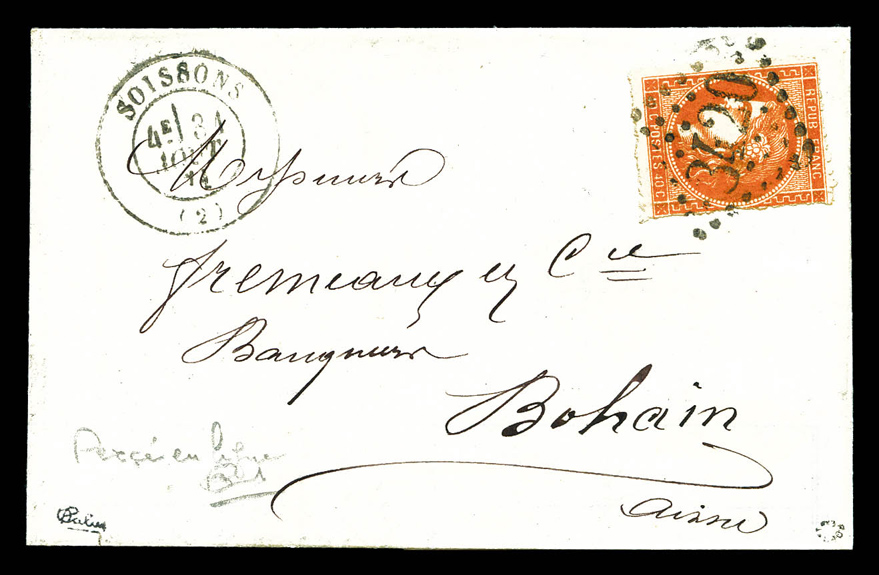 SOISSONS
4E/ 31
AOUT
71
(2)
3420
REPUB. FRANC.
POSTES 40 C
Messieurs
Fremeaux et Cie
Banquiers
Bohain
Aisne
Percé en ligne
Calves